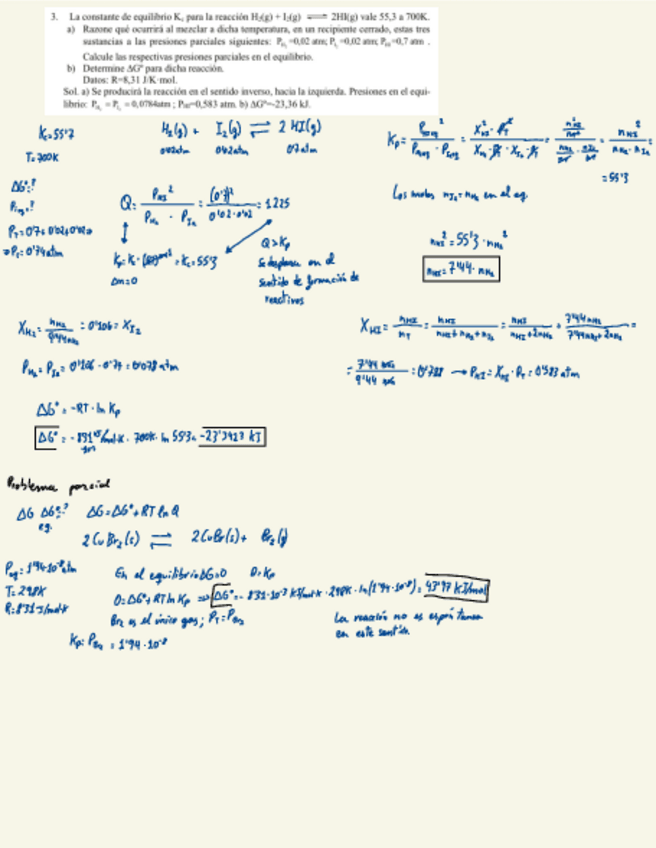 3. La constante de equilibrio Kc para la reacción H₂(g) + I₂(g) ⇌ 2HI(g) vale 55,3 a 700K.
a) Razone qué ocurrirá al mezclar a dicha temperatura, en un recipiente cerrado, estas tres
sustancias a las presiones parciales siguientes: P_H₂=0,02 atm; P_I₂=0,02 atm; P_HI=0,7 atm .
Calcule las respectivas presiones parciales en el equilibrio.
b) Determine ΔGº para dicha reacción.
Datos: R=8,31 J/K·mol.
Sol. a) Se producirá la reacción en el sentido inverso, hacia la izquierda. Presiones en el equi-
librio: P_H₂ = P_I₂ = 0,0784atm ; P_HI=0,583 atm. b) ΔGº=-23,36 kJ.
Kc=55'3
T=700K
H₂(g) + I₂(g) ⇌ 2 HI(g)
0'02atm 0'02atm 0'7atm
ΔGº?
P_T=0'7+0'02+0'02=
=>P_T=0'74atm
Q= P_HI² / P_H₂ · P_I₂ = (0'7)² / 0'02·0'02 = 1225
= Kc=55'3
Δn=0
Q>Kp
Se desplaza en el
sentido de formación de
reactivos
= n_HI² / n_H₂ · n_I₂
=55'3
Los moles n_I₂=n_H₂ en el eq.
n_HI²=55'3·n_H₂²
n_HI=7'44·n_H₂
X_H₂= n_H₂ / 9'44n_H₂ = 0'106 = X_I₂
P_H₂=P_I₂=0'106·0'74=0'078atm
X_HI= n_HI / n_T = n_HI / n_HI+n_H₂+n_I₂ = n_HI / n_HI+2n_H₂ = 7'44n_H₂ / 7'44n_H₂+2n_H₂ =
= 7'44 n_H₂ / 9'44 n_H₂ = 0'788 → P_HI=X_HI·P_T=0'583 atm
ΔGº=-RT·ln Kp
Problema parcial
ΔG ΔGº? ΔG=ΔGº+RT ln Q
eq.
2CuBr₂(s) ⇌ 2CuBr(s)+ Br₂(g)
T=298K
R=8'31J/mol·K
En el equilibrio ΔG=0 Q=Kp
0=ΔGº+RT ln Kp => ΔGº=-8'31·10⁻³ kJ/mol·K·298K·ln(1'94·10⁻⁸)= 43'97 kJ/mol
Br₂ es el único gas; P_T=P_Br₂
Kp=P_Br₂=1'94·10⁻⁸
La reacción no es espontánea
en este sentido.